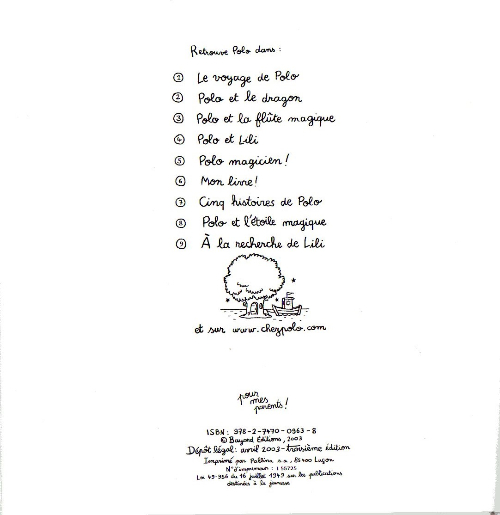 Retrouve Polo dans :
① Le voyage de Polo
② Polo et le dragon
③ Polo et la flûte magique
④ Polo et Lili
⑤ Polo magicien !
⑥ Mon livre !
⑦ Cinq histoires de Polo
⑧ Polo et l'étoile magique
⑨ À la recherche de Lili
et sur www.chezpolo.com
pour
mes
parents !
ISBN : 978-2-7470-0963-8
© Bayard Éditions, 2003
Dépôt légal : avril 2003 - troisième édition
Imprimé par Pollina s.a., 85400 Luçon
N° d'imprimeur :
Loi 49-956 du 16 juillet 1949 sur les publications
destinées à la jeunesse